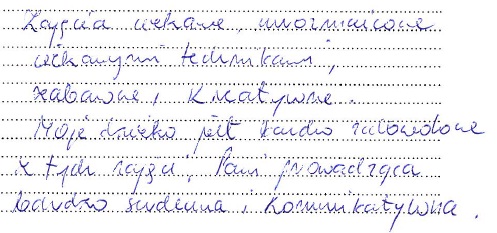 Zajęcia ciekawe, urozmaicone
ciekawymi technikami,
zabawne, kreatywne.
Moje dziecko jest bardzo zadowolone
z tych zajęć, Pani prowadząca
bardzo serdeczna i komunikatywna.